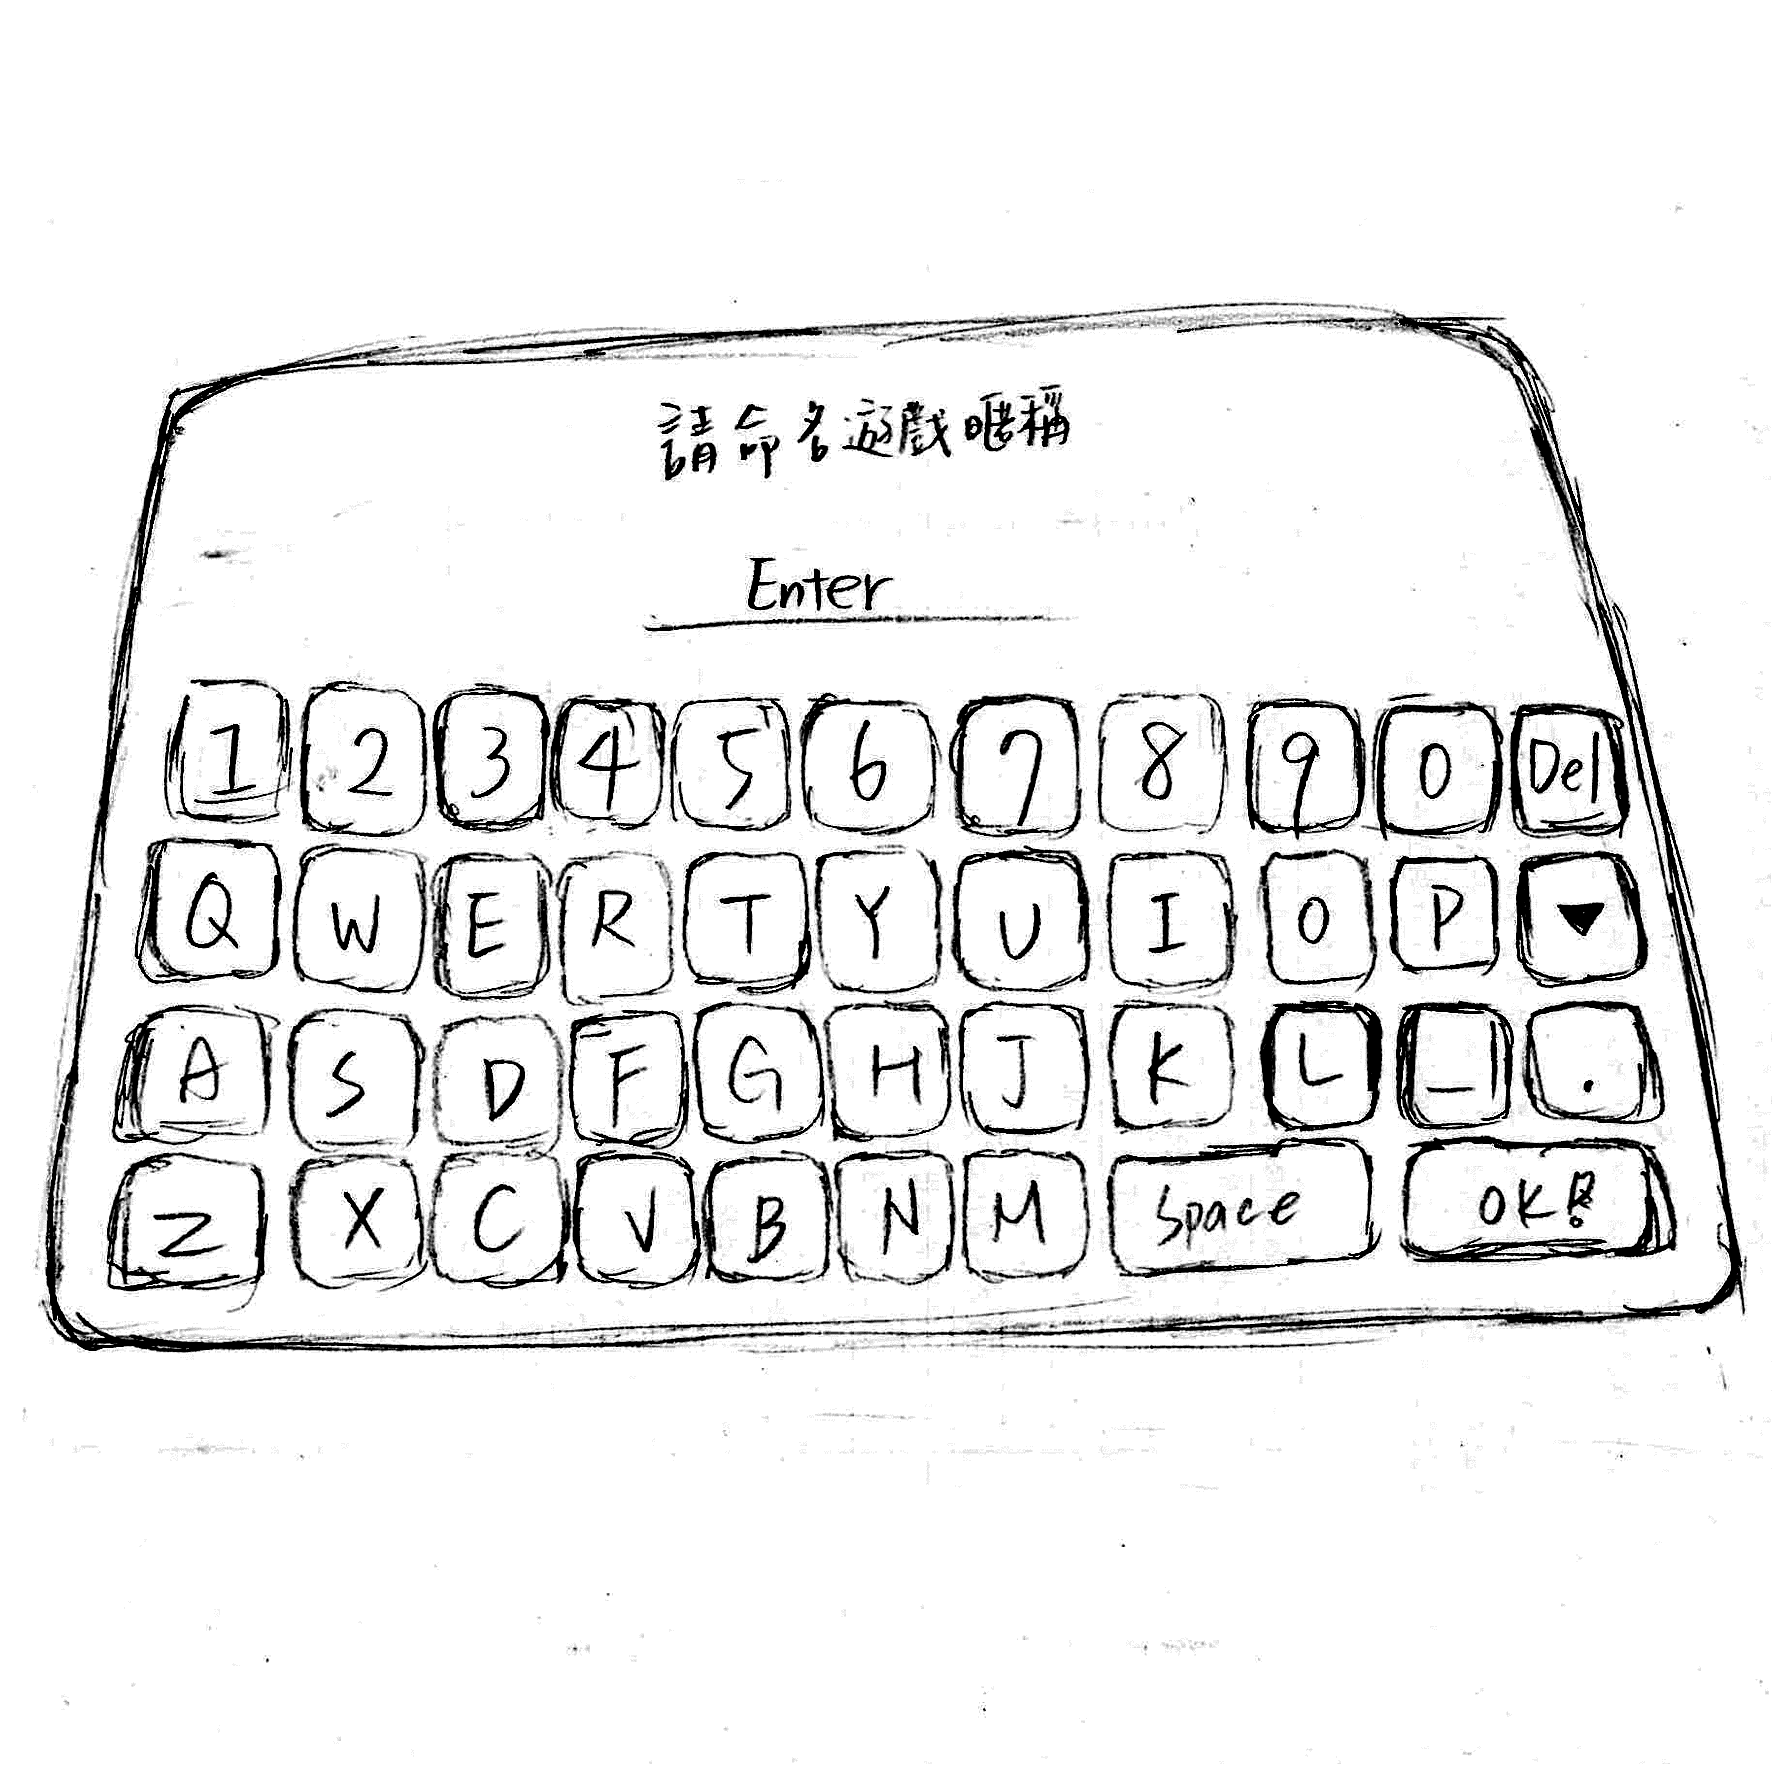 請命名遊戲暱稱
Enter
1 2 3 4 5 6 7 8 9 0 Del
Q W E R T Y U I O P ▼
A S D F G H J K L _ .
Z X C V B N M Space OK!